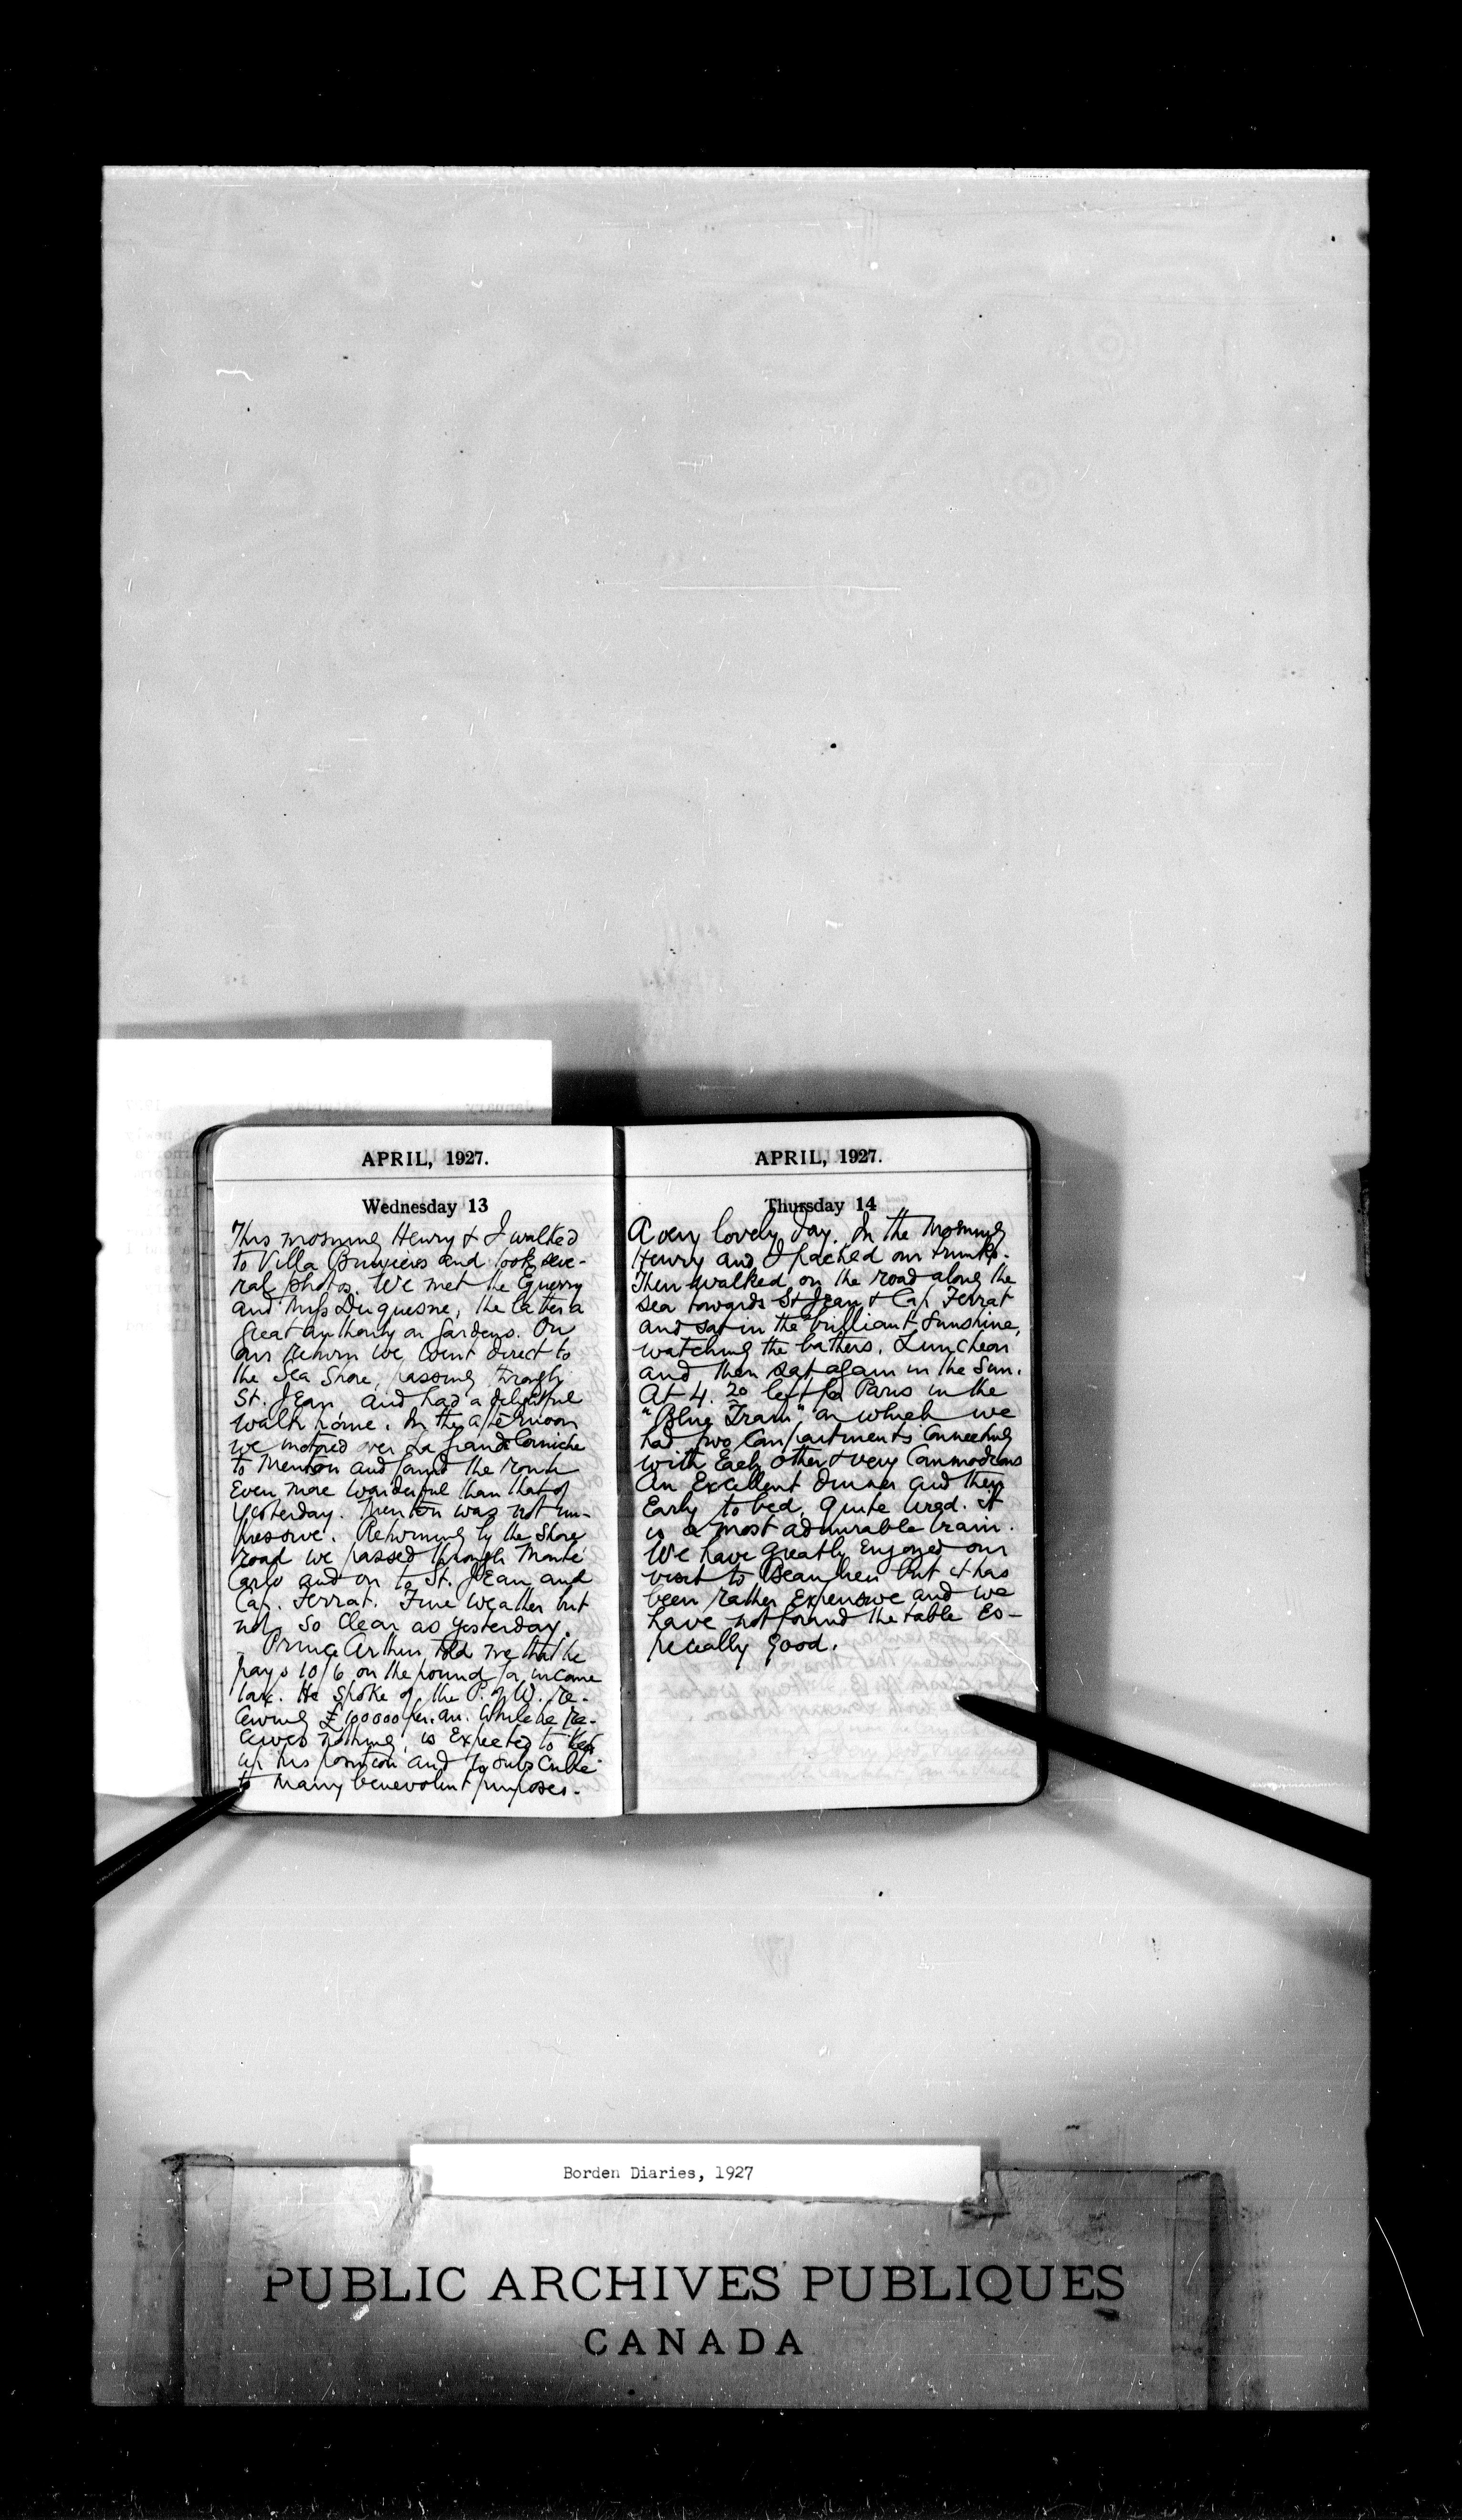 APRIL, 1927.
Wednesday 13
This morning Henry & I walked
to Villa and took seve-
ral photos. We met the Equerry
and Miss Duquesne, the latter a
great authority on Gardens. On
our return we went direct to
the Sea Shore, passing through
St. Jean and had a delightful
walk home. In the afternoon
we motored over La Grande Corniche
to Menton and found the route
Even more wonderful than that of
yesterday. Menton was not im-
pressive. Returning by the Shore
road we passed through Monte
Carlo and on to St. Jean and
Cap. Ferrat. Fine weather but
not so clear as yesterday.
Prince Arthur told me that he
pays 10/6 on the pound for income
tax. He spoke of the P. of W. re-
ceiving £100000 per. an. While he re-
ceives nothing, is Expected to keep
up his position and to subscribe
to many benevolent purposes.
APRIL, 1927.
Thursday 14
A very lovely day. In the morning
Henry and I packed our trunks.
Then walked on the road along the
sea towards St Jean & Cap Ferrat
and sat in the brilliant Sunshine,
watching the bathers. Luncheon
and then sat again in the Sun.
At 4.20 left for Paris in the
"Blue Train" on which we
had two Compartments Connecting
with Each other & very Commodious
An Excellent dinner and then
Early to bed, quite tired. It
is a most admirable train.
We have greatly Enjoyed our
visit to Beaulieu but it has
been rather Expensive and we
have not found the table Es-
pecially good.
Borden Diaries, 1927
PUBLIC ARCHIVES PUBLIQUES
CANADA